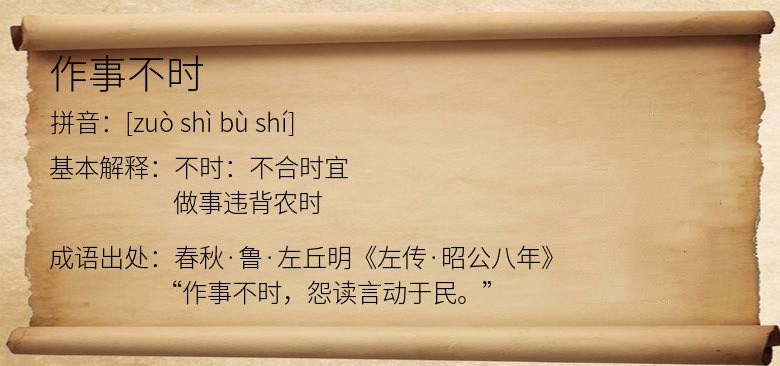 作事不时
拼音：[zuò shì bù shí]
基本解释：不时：不合时宜
做事违背农时
成语出处：春秋·鲁·左丘明《左传·昭公八年》
“作事不时，怨读言动于民。”